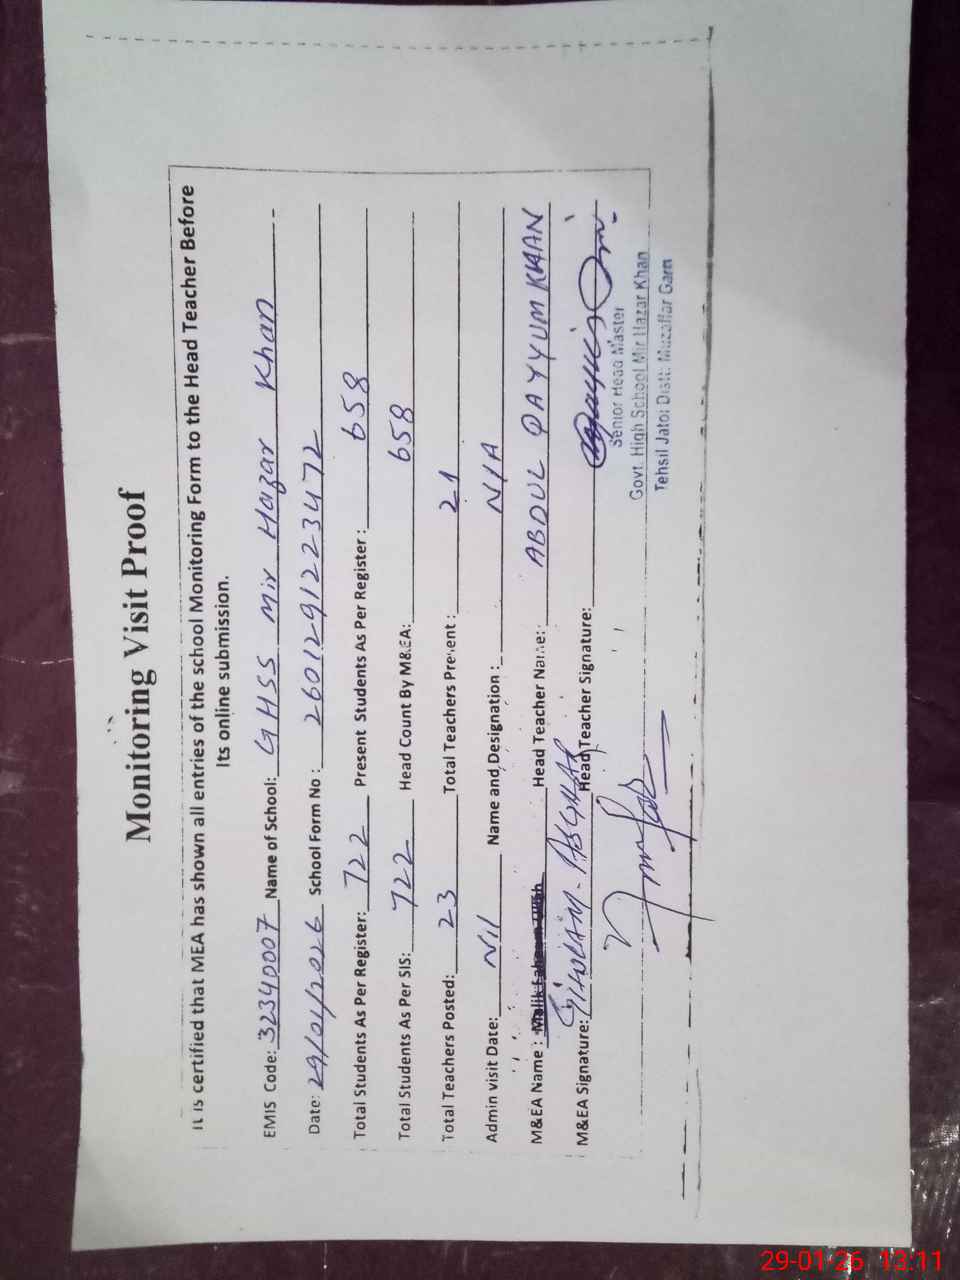 Monitoring Visit Proof
It is certified that MEA has shown all entries of the school Monitoring Form to the Head Teacher Before
Its online submission.
EMIS Code: 32340007 Name of School: GHSS Mir Hazar Khan
Date: 29/01/2026 School Form No : 2601291223472
Total Students As Per Register: 722 Present Students As Per Register : 658
Total Students As Per SIS: 722 Head Count By M&EA: 658
Total Teachers Posted: 23 Total Teachers Present : 21
Admin visit Date: Nil Name and Designation : N/A
M&EA Name : GHULAM ASGHAR Head Teacher Name: ABDUL QAYYUM KHAN
M&EA Signature: Head Teacher Signature:
Senior Head Master
Govt. High School Mir Hazar Khan
Tehsil Jatoi Distt: Muzaffar Garh
29-01-26 13:11